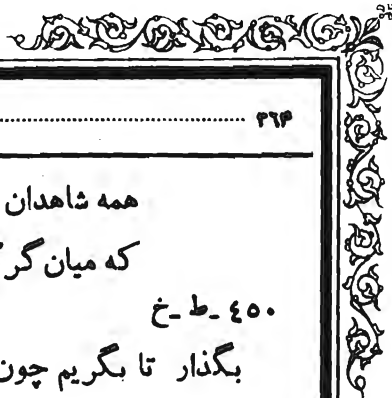 ۳۶۳ ........................................
همه شاهدان
که میان گر
٤٥٠ ـ ط ـ خ
بگذار تا بگریم چون